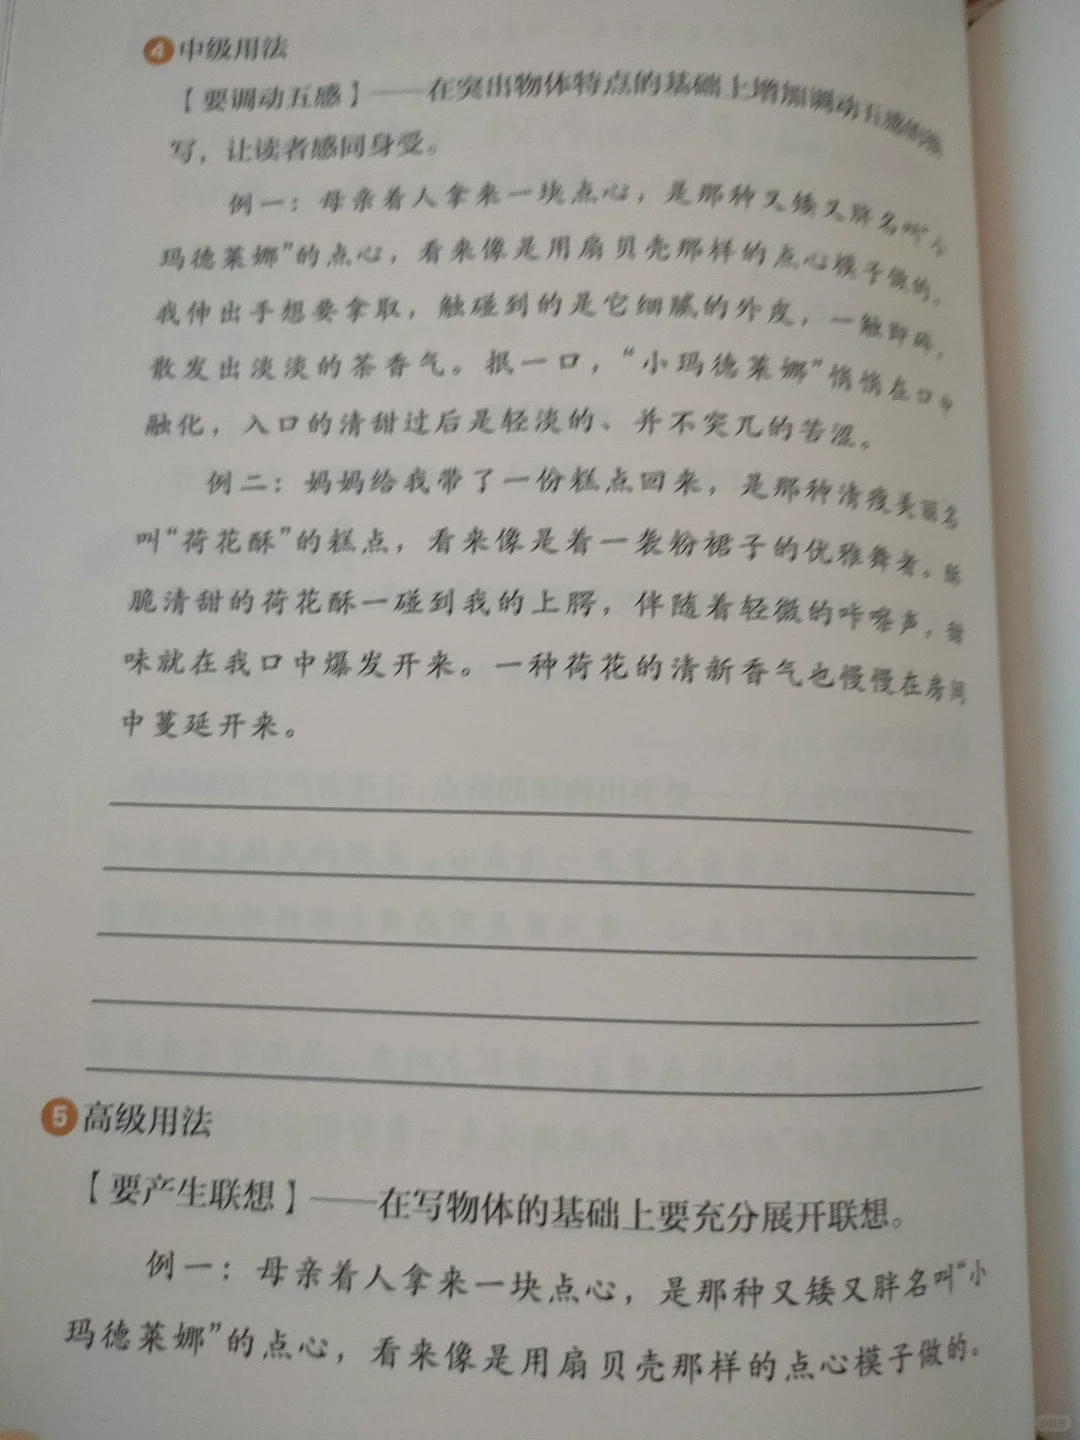 4 中级用法
【要调动五感】——在突出物体特点的基础上增加调动五感的描
写，让读者感同身受。
例一：母亲着人拿来一块点心，是那种又矮又胖名叫“小
玛德莱娜”的点心，看来像是用扇贝壳那样的点心模子做的。
我伸出手想要拿取，触碰到的是它细腻的外皮，一触即碎，
散发出淡淡的茶香气。抿一口，“小玛德莱娜”悄悄在口中
融化，入口的清甜过后是轻淡的、并不突兀的苦涩。
例二：妈妈给我带了一份糕点回来，是那种清瘦美丽名
叫“荷花酥”的糕点，看来像是着一袭粉裙子的优雅舞者。酥
脆清甜的荷花酥一碰到我的上腭，伴随着轻微的咔嚓声，甜
味就在我口中爆发开来。一种荷花的清新香气也慢慢在房间
中蔓延开来。
5 高级用法
【要产生联想】——在写物体的基础上要充分展开联想。
例一：母亲着人拿来一块点心，是那种又矮又胖名叫“小
玛德莱娜”的点心，看来像是用扇贝壳那样的点心模子做的。